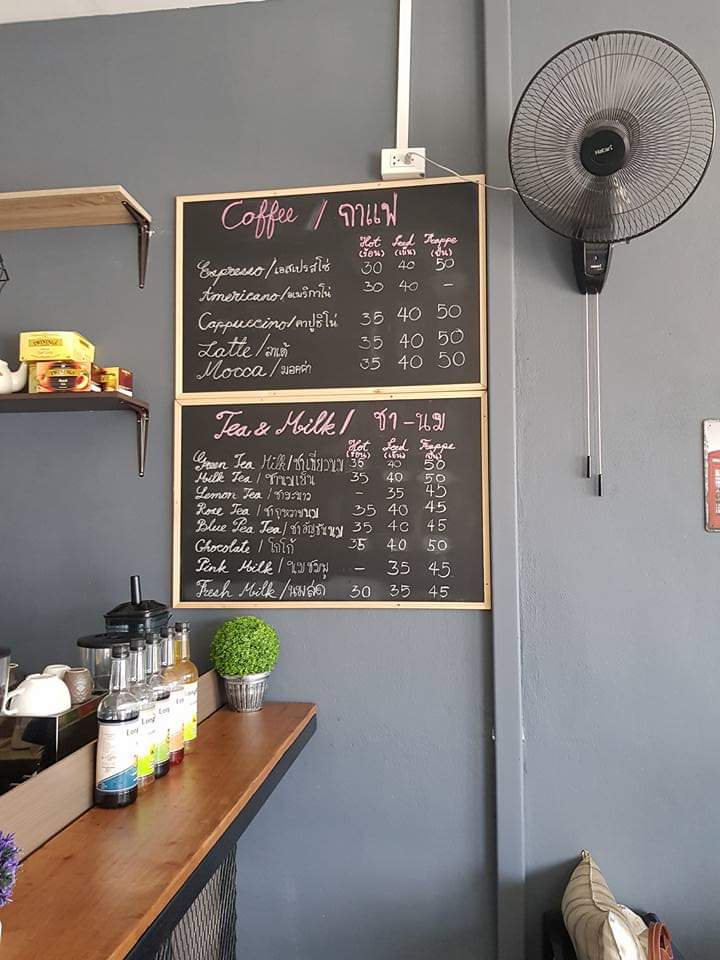 Coffee / กาแฟ
Hot Iced Frappe
(ร้อน) (เย็น) (ปั่น)
Espresso/เอสเปรสโซ่ 30 40 50
Americano/อเมริกาโน่ 30 40 -
Cappuccino/คาปูชิโน่ 35 40 50
Latte/ลาเต้ 35 40 50
Mocca/มอคค่า 35 40 50
Tea & Milk / ชา-นม
Hot Iced Frappe
(ร้อน) (เย็น) (ปั่น)
Green Tea Milk/ชาเขียวนม 35 40 50
Milk Tea/ชานมเย็น 35 40 50
Lemon Tea/ชามะนาว - 35 45
Rose Tea/ชากุหลาบนม 35 40 45
Blue Pea Tea/ชาอัญชันนม 35 40 45
Chocolate/โกโก้ 35 40 50
Pink Milk/นมชมพู - 35 45
Fresh Milk/นมสด 30 35 45
Hatari
TWININGS